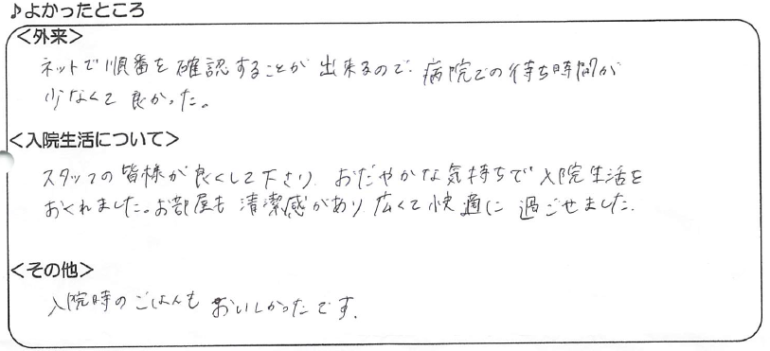 ♪よかったところ
<外来>
ネットで順番を確認することが出来るので、病院での待ち時間が
少なくて良かった。
<入院生活について>
スタッフの皆様が良くして下さり、おだやかな気持ちで入院生活を
おくれました。お部屋も清潔感があり広くて快適に過ごせました。
<その他>
入院時のごはんもおいしかったです。